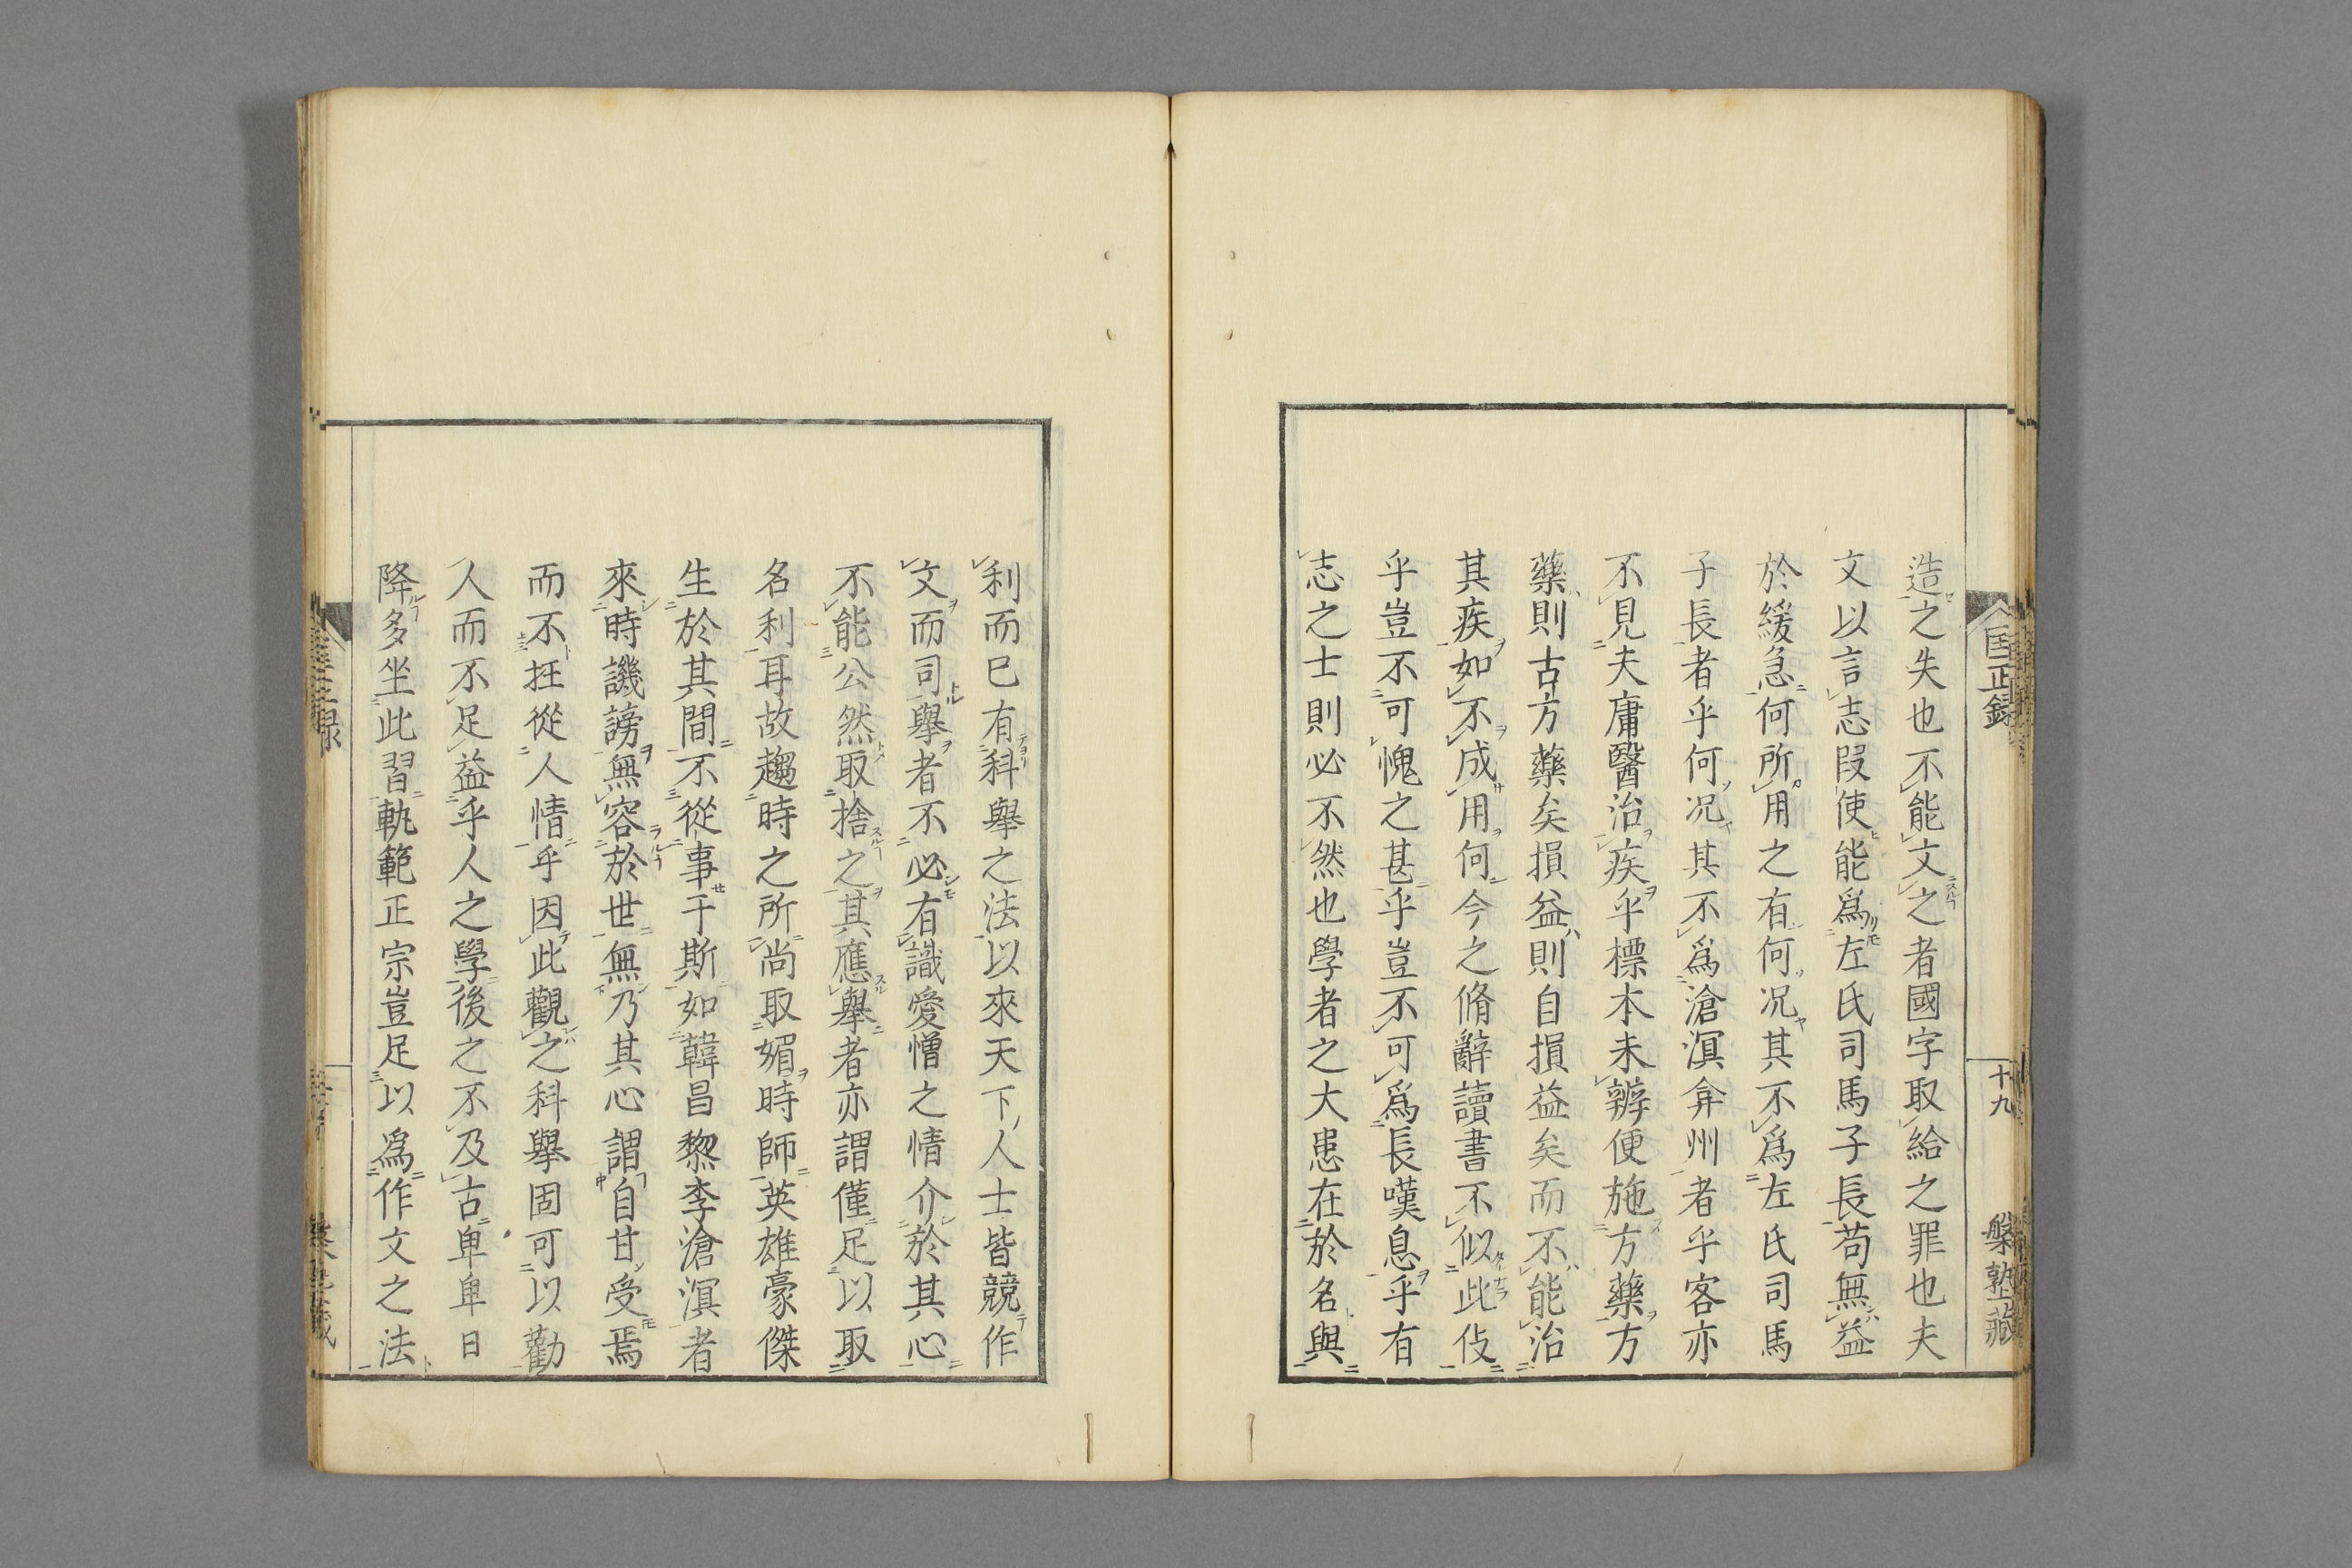 匡正録
十九
槃塾藏
造之失也不能文之者國字取給之罪也夫
文以言志叚使能爲左氏司馬子長苟無益
於緩急何所用之有何况其不爲左氏司馬
子長者乎何况其不爲滄溟弇州者乎客亦
不見夫庸醫治疾乎標本未辨便施方藥方
藥則古方藥矣損益則自損益矣而不能治
其疾如不成用何今之脩辭讀書不似此伎
乎豈不可愧之甚乎豈不可爲長嘆息乎有
志之士則必不然也學者之大患在於名與
利而已有科舉之法以來天下人士皆競作
文而司舉者不必有識愛憎之情介於其心
不能公然取捨之其應舉者亦謂僅足以取
名利耳故趨時之所尚取媚時師英雄豪傑
生於其間不從事于斯如韓昌黎李滄溟者
來時譏謗無容於世無乃其心謂自甘受焉
而不抂從人情乎因此觀之科舉固可以勸
人而不足益乎人之學後之不及古卑卑日
降多坐此習軌範正宗豈足以爲作文之法